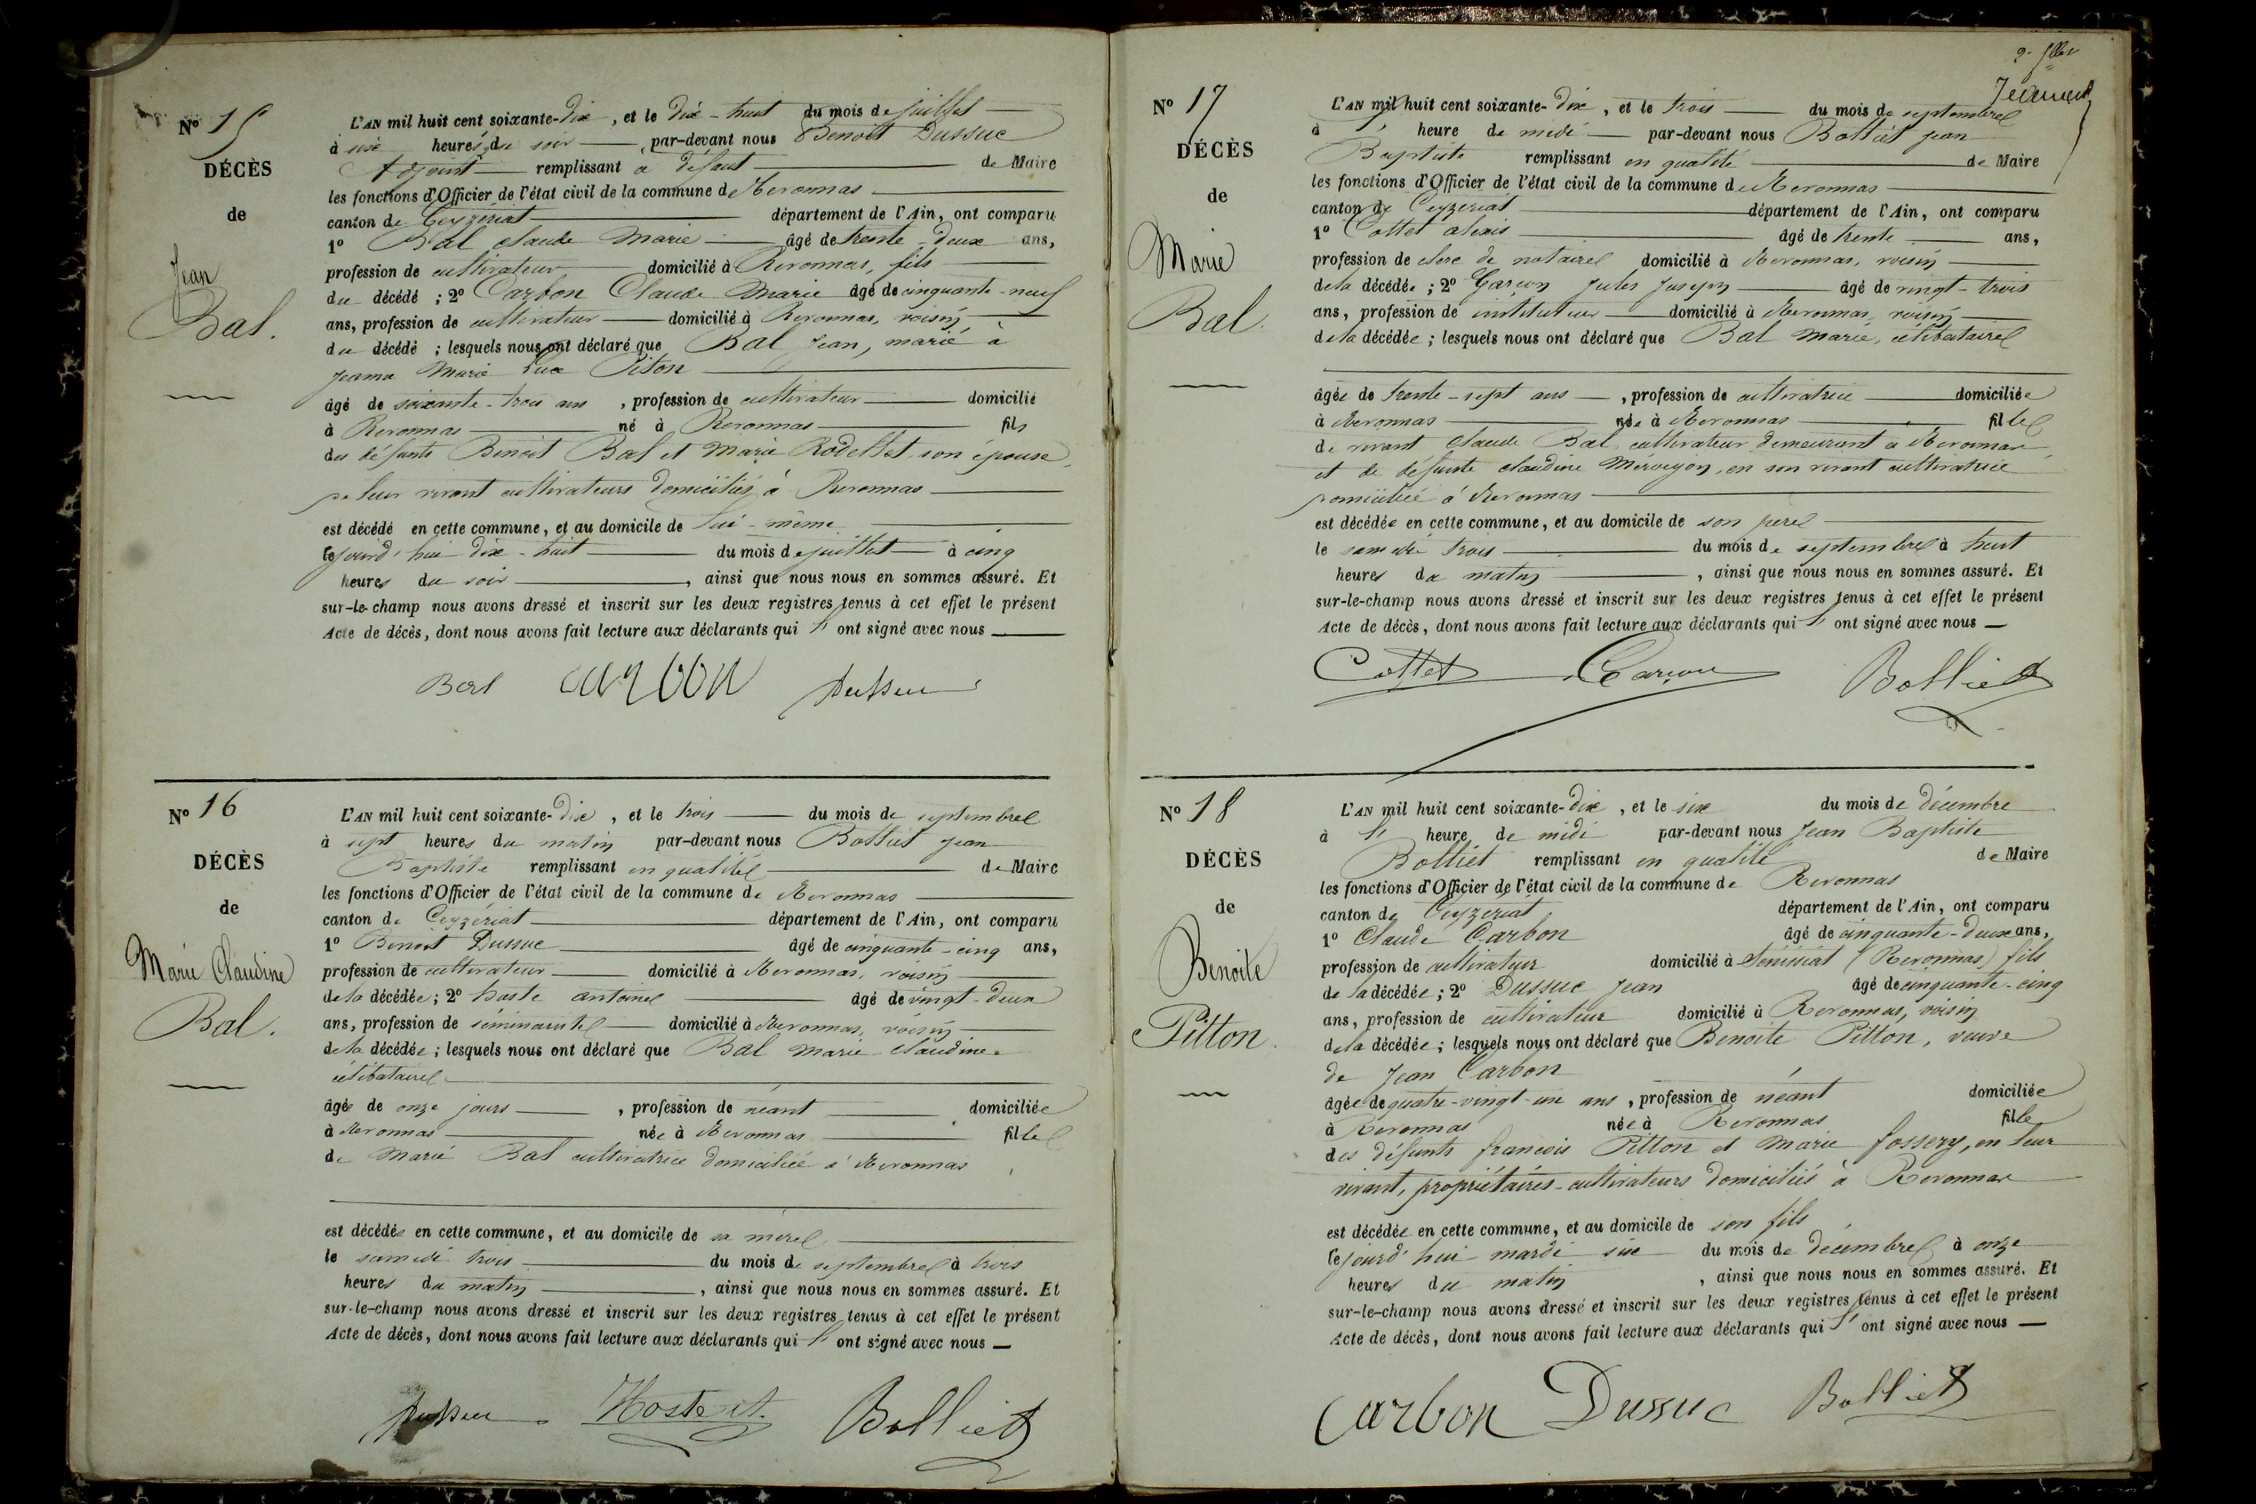 N° 15
DÉCÈS
de
Jean
Bal.
L'AN mil huit cent soixante-dix, et le dix-huit du mois de juillet
à six heures du soir, par-devant nous Benoit Dussuc
Adjoint remplissant à défaut de Maire
les fonctions d'Officier de l'état civil de la commune de Revonnas
canton de Ceyzériat département de l'Ain, ont comparu
1° Bal Claude Marie âgé de trente-deux ans,
profession de cultivateur domicilié à Revonnas, fils
du décédé ; 2° Carbon Claude Marie âgé de cinquante-neuf
ans, profession de cultivateur domicilié à Revonnas, voisin
du décédé ; lesquels nous ont déclaré que Bal Jean, marié à
Marie Piton
âgé de soixante-trois ans, profession de cultivateur domicilié
à Revonnas né à Revonnas fils
des défunts Benoit Bal et Marie Rodettet son épouse,
de leur vivant cultivateurs domiciliés à Revonnas
est décédé en cette commune, et au domicile de lui-même
lejourd'hui dix-huit du mois de juillet à cinq
heures du soir, ainsi que nous nous en sommes assuré. Et
sur-le-champ nous avons dressé et inscrit sur les deux registres tenus à cet effet le présent
Acte de décès, dont nous avons fait lecture aux déclarants qui l'ont signé avec nous
Bal Carbon Dussuc
N° 16
DÉCÈS
de
Marie Claudine
Bal.
L'AN mil huit cent soixante-dix, et le trois du mois de septembre
à sept heures du matin par-devant nous Bolliet Jean
Baptiste remplissant en qualité de Maire
les fonctions d'Officier de l'état civil de la commune de Revonnas
canton de Ceyzériat département de l'Ain, ont comparu
1° Benoit Dussuc âgé de cinquante-cinq ans,
profession de cultivateur domicilié à Revonnas, voisin
de la décédée ; 2° antoine âgé de vingt-deux
ans, profession de séminariste domicilié à Revonnas, voisin
de la décédée ; lesquels nous ont déclaré que Bal Marie Claudine
célibataire
âgée de onze jours, profession de néant domiciliée
à Revonnas née à Revonnas fille
de Marie Bal cultivatrice domiciliée à Revonnas
est décédée en cette commune, et au domicile de sa mère
le samedi trois du mois de septembre à trois
heures du matin, ainsi que nous nous en sommes assuré. Et
sur-le-champ nous avons dressé et inscrit sur les deux registres tenus à cet effet le présent
Acte de décès, dont nous avons fait lecture aux déclarants qui l'ont signé avec nous
Dussuc Bolliet
N° 17
DÉCÈS
de
Marie
Bal.
L'AN mil huit cent soixante-dix, et le trois du mois de septembre
à heure de midi par-devant nous Bolliet Jean
Baptiste remplissant en qualité de Maire
les fonctions d'Officier de l'état civil de la commune de Revonnas
canton de Ceyzériat département de l'Ain, ont comparu
1° Cottet alexis âgé de trente ans,
profession de clerc de notaire domicilié à Revonnas, voisin
de la décédée ; 2° Garçon Jules Joseph âgé de vingt-trois
ans, profession de instituteur domicilié à Revonnas, voisin
de la décédée ; lesquels nous ont déclaré que Bal Marie, célibataire
âgée de trente-sept ans, profession de cultivatrice domiciliée
à Revonnas née à Revonnas fille
de vivant Claude Bal cultivateur demeurant à Revonnas
et de défunte Claudine en son vivant cultivatrice
domiciliée à Revonnas
est décédée en cette commune, et au domicile de son père
le samedi trois du mois de septembre à huit
heures du matin, ainsi que nous nous en sommes assuré. Et
sur-le-champ nous avons dressé et inscrit sur les deux registres tenus à cet effet le présent
Acte de décès, dont nous avons fait lecture aux déclarants qui l'ont signé avec nous
Cottet Garçon Bolliet
N° 18
DÉCÈS
de
Benoite
Pitton
L'AN mil huit cent soixante-dix, et le six du mois de décembre
à heure de midi par-devant nous Jean Baptiste
Bolliet remplissant en qualité de Maire
les fonctions d'Officier de l'état civil de la commune de Revonnas
canton de Ceyzériat département de l'Ain, ont comparu
1° Claude Carbon âgé de cinquante-deux ans,
profession de cultivateur domicilié à Sénissiat (Revonnas) fils
de la décédée ; 2° Dussuc Jean âgé de cinquante-cinq
ans, profession de cultivateur domicilié à Revonnas, voisin
de la décédée ; lesquels nous ont déclaré que Benoite Pitton, veuve
de Jean Carbon
âgée de quatre-vingt-un ans, profession de néant domiciliée
à Revonnas née à Revonnas fille
des défunts françois Pitton et Marie fossery, en leur
vivant, propriétaires-cultivateurs domiciliés à Revonnas
est décédée en cette commune, et au domicile de son fils
lejourd'hui mardi six du mois de décembre à onze
heures du matin, ainsi que nous nous en sommes assuré. Et
sur-le-champ nous avons dressé et inscrit sur les deux registres tenus à cet effet le présent
Acte de décès, dont nous avons fait lecture aux déclarants qui l'ont signé avec nous
Carbon Dussuc Bolliet